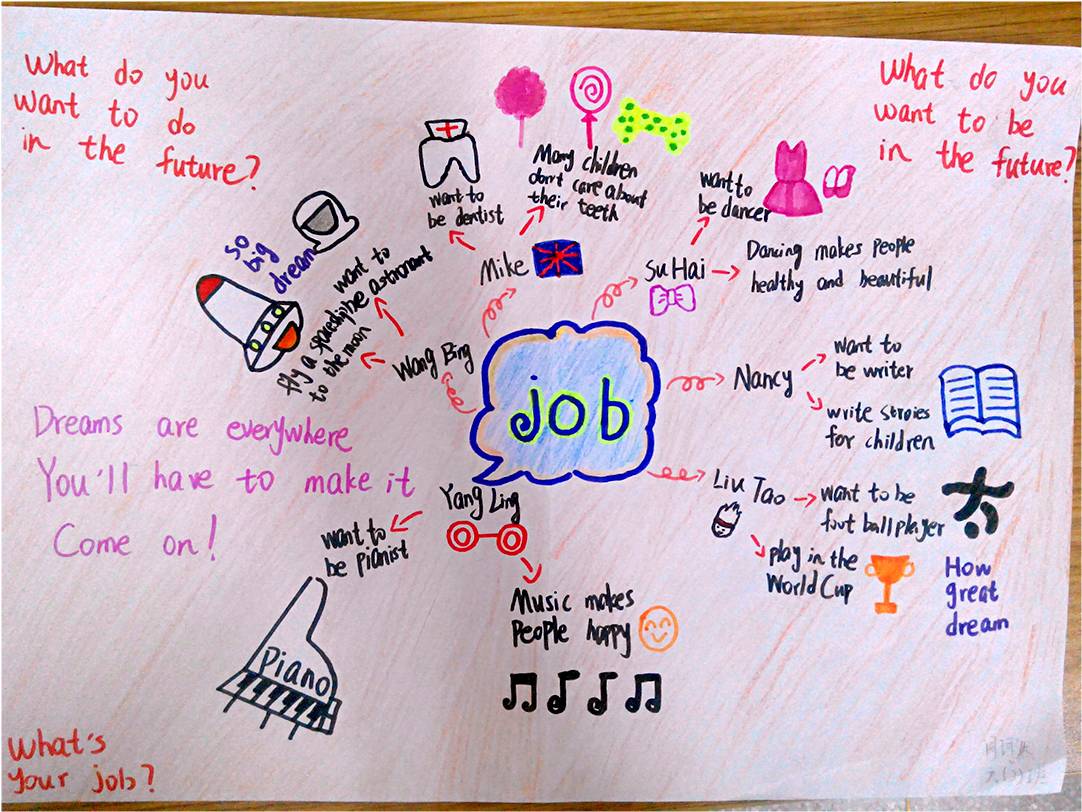 What do you
want to do
in the future?
What do you
want to be
in the future?
so
big
dream
want to
be astronaut
fly a spaceship
to the moon
Wang Bing
want to
be dentist
Many children
don't care about
their teeth
Mike
want to
be dancer
Su Hai
Dancing makes people
healthy and beautiful
job
Nancy
want to
be writer
write stroies
for children
Liu Tao
want to be
foot ball player
play in the
World Cup
How
great
dream
Dreams are everywhere
You'll have to make it
Come on!
Yang Ling
want to
be pianist
Piano
Music makes
people happy
What's
your job?